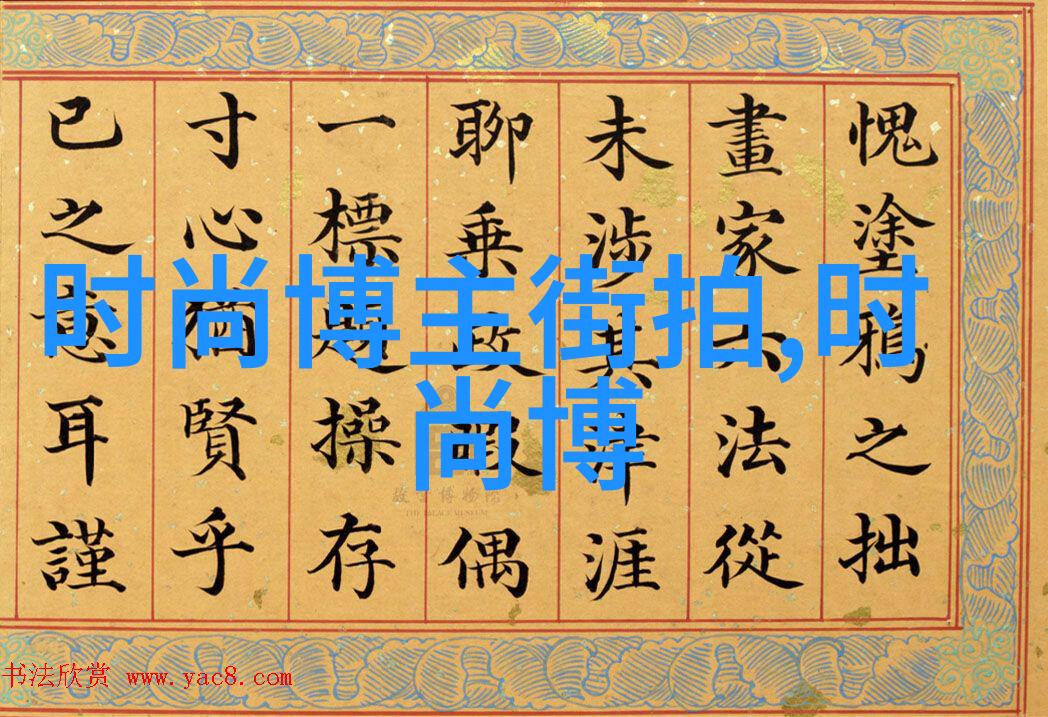 愧塗鴉之拙
畫家六法從
未涉其津涯
聊乘政暇偶
一標題操存
寸心猶賢乎
已之意耳謹
时尚博主街拍,时
尚博
故宫博物院
THE PALACE MUSEUM
书法欣赏 www.yac8.com